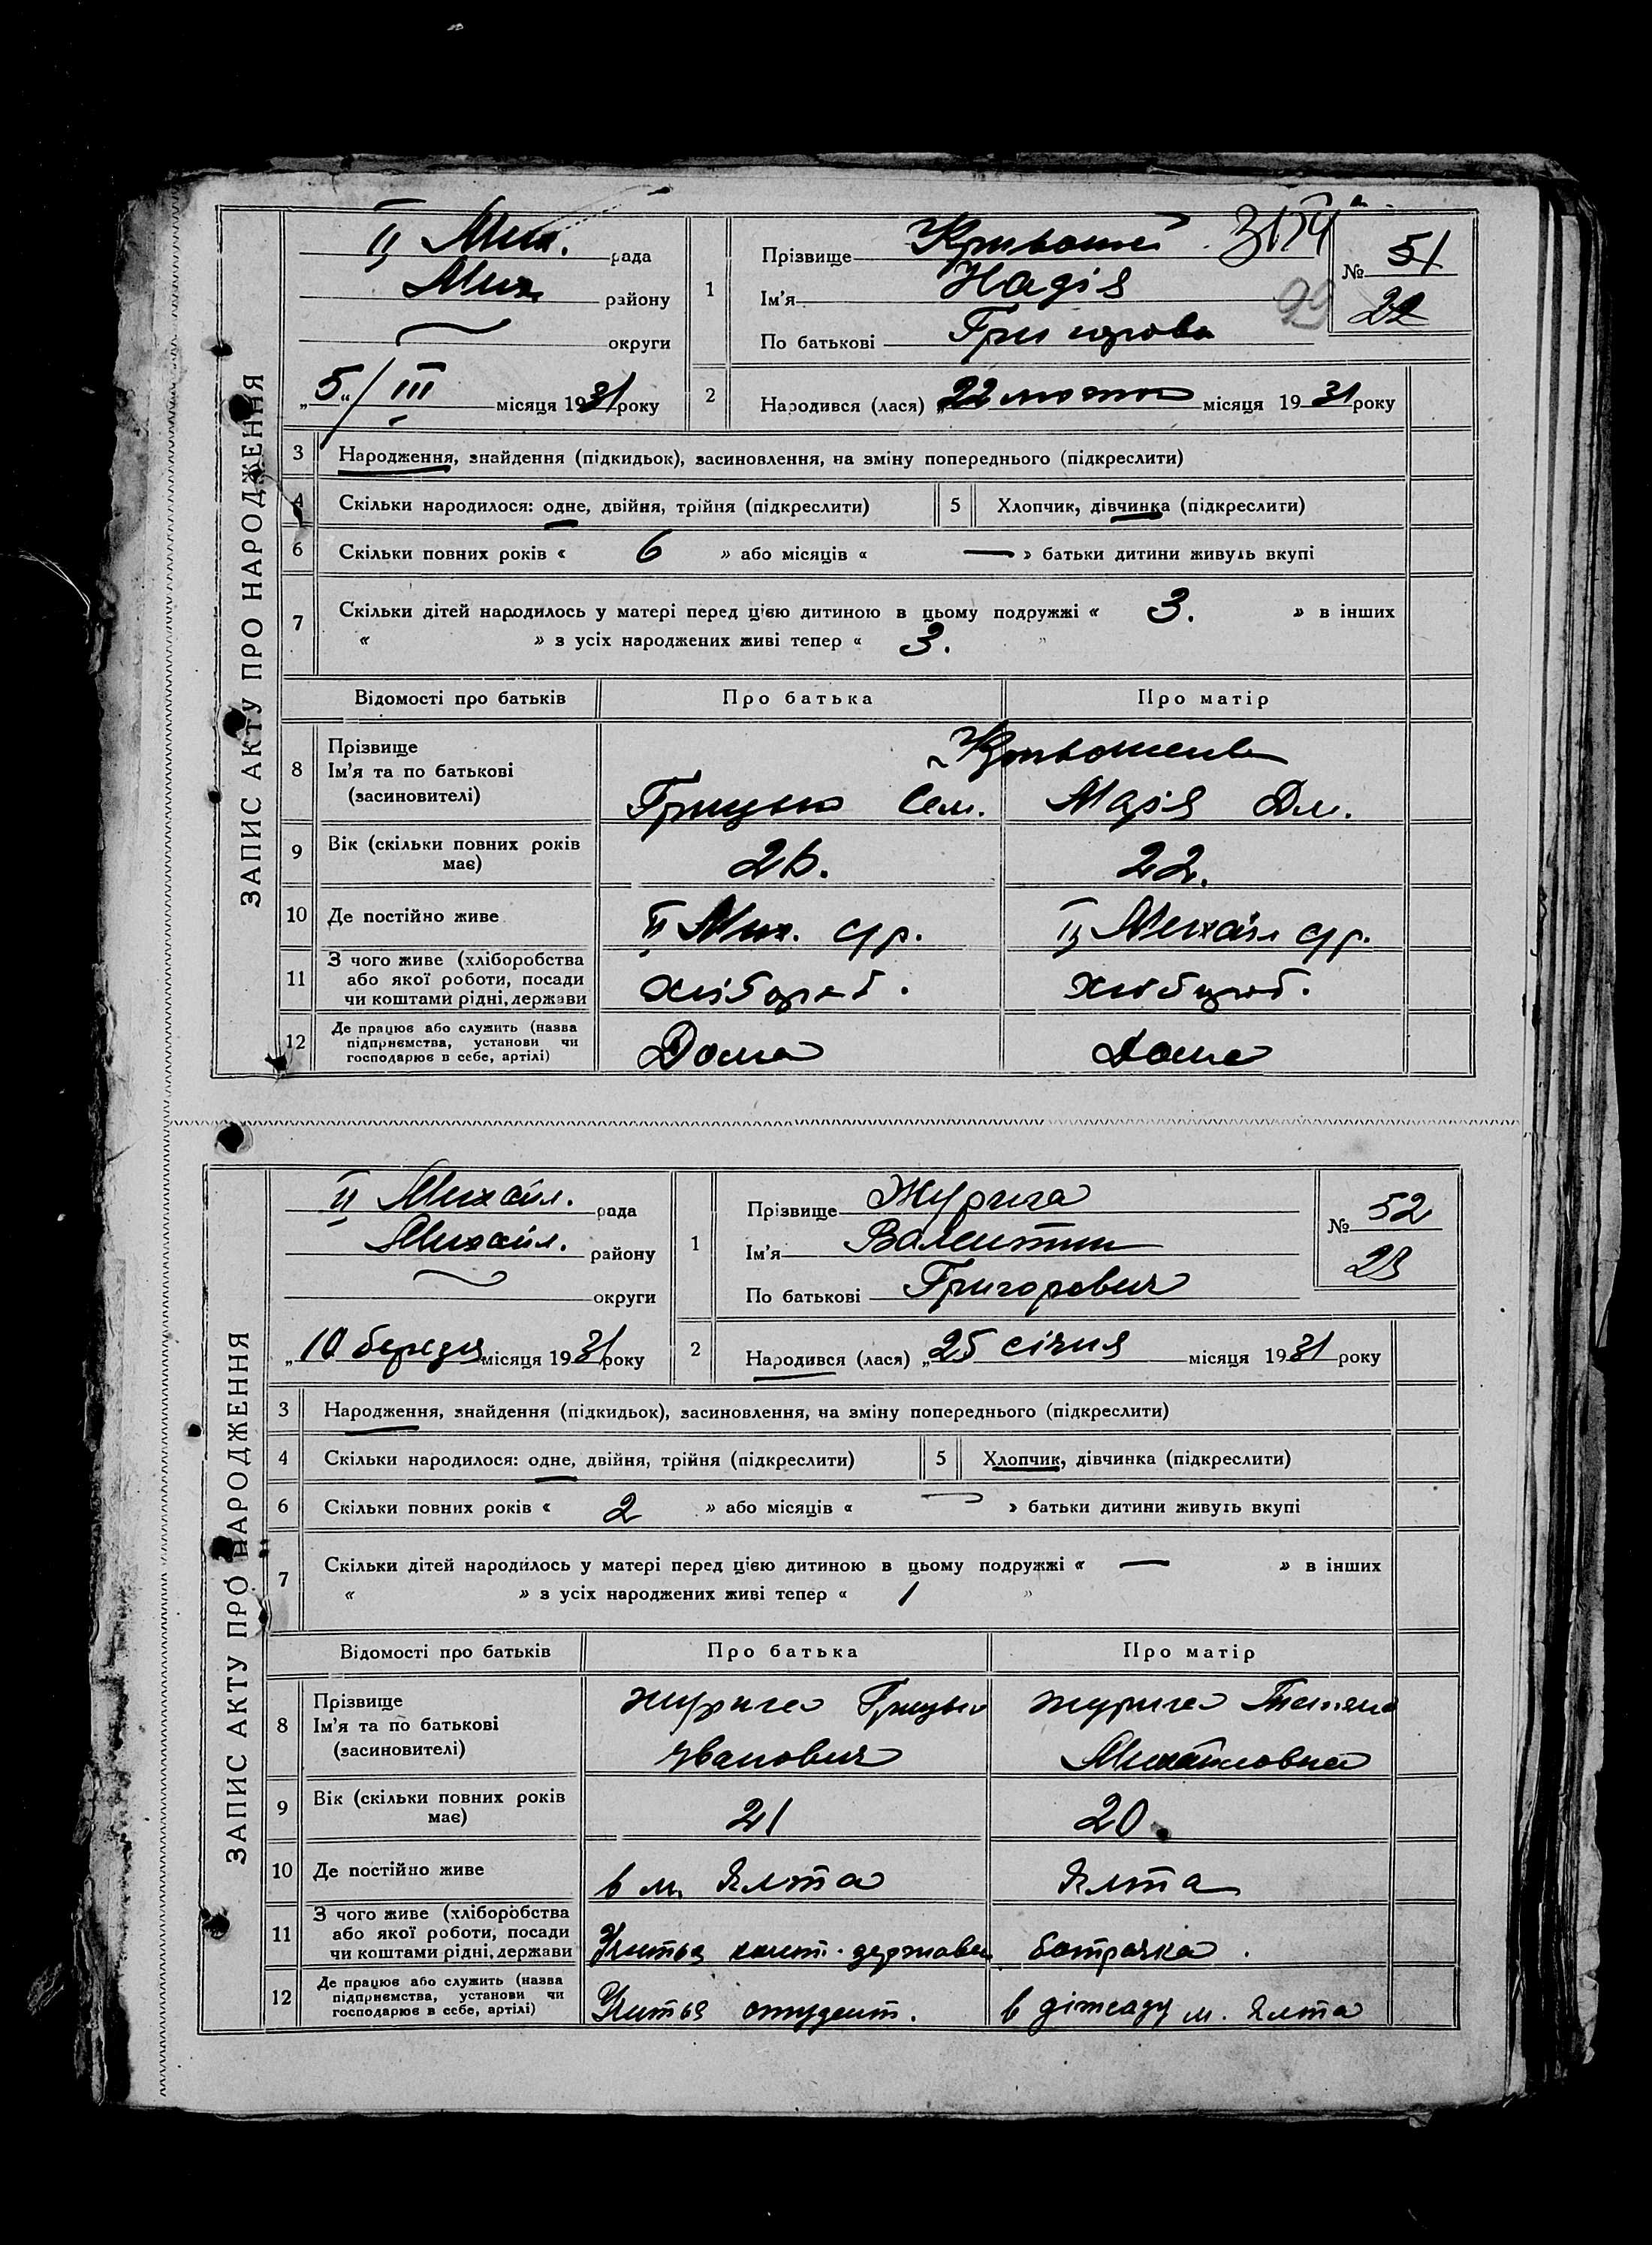 ЗАПИС АКТУ ПРО НАРОДЖЕННЯ
II Мих. рада
Мих. району
округи
„5“/III місяця 1931 року
1 Прізвище Кривошей
Ім'я Надія
По батькові Григорова
№ 51
22
99
2 Народився (лася) „22 лютого місяця 1931 року
3 Народження, знайдення (підкидьок), засиновлення, на зміну попереднього (підкреслити)
4 Скільки народилося: одне, двійня, трійня (підкреслити) 5 Хлопчик, дівчинка (підкреслити)
6 Скільки повних років « 6 » або місяців « — » батьки дитини живуть вкупі
7 Скільки дітей народилось у матері перед цією дитиною в цьому подружжі « 3. » в інших
« » з усіх народжених живі тепер « 3. »
Відомості про батьків Про батька Про матір
8 Прізвище
Ім'я та по батькові
(засиновителі)
Грицько Сем. Марія Дм.
9 Вік (скільки повних років має) 26. 22.
10 Де постійно живе II Мих. с/р. II Михайл с/р.
11 З чого живе (хліборобства або якої роботи, посади чи коштами рідні, держави хлібороб. хлібороб.
12 Де працює або служить (назва підприємства, установи чи господарює в себе, артілі) Дома Дома
ЗАПИС АКТУ ПРО НАРОДЖЕННЯ
II Михайл. рада
Михайл. району
округи
„10 березня місяця 1931 року
1 Прізвище Журига
Ім'я Валентин
По батькові Григорович
№ 52
23
2 Народився (лася) „25 січня місяця 1931 року
3 Народження, знайдення (підкидьок), засиновлення, на зміну попереднього (підкреслити)
4 Скільки народилося: одне, двійня, трійня (підкреслити) 5 Хлопчик, дівчинка (підкреслити)
6 Скільки повних років « 2 » або місяців « — » батьки дитини живуть вкупі
7 Скільки дітей народилось у матері перед цією дитиною в цьому подружжі « — » в інших
« » з усіх народжених живі тепер « 1 »
Відомості про батьків Про батька Про матір
8 Прізвище
Ім'я та по батькові
(засиновителі)
Журига Грицько Журига Татяна
Іванович Михайловна
9 Вік (скільки повних років має) 21 20.
10 Де постійно живе в м. Ялта Ялта
11 З чого живе (хліборобства або якої роботи, посади чи коштами рідні, держави Учиться кошт. державы батрачка.
12 Де працює або служить (назва підприємства, установи чи господарює в себе, артілі) Учиться студент. в дітсаду м. Ялта